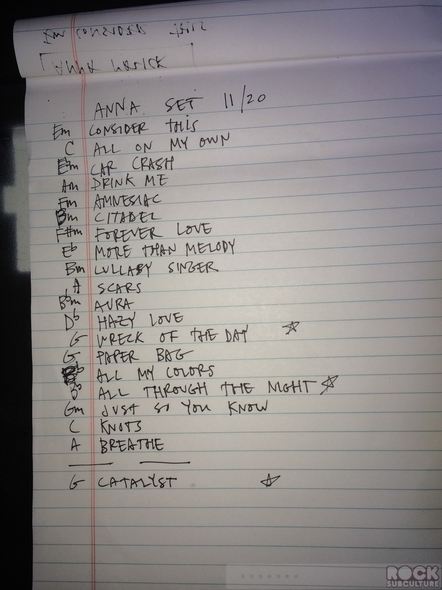 Em CONSIDER THIS
ANNA NALICK
ANNA SET 11/20
Em CONSIDER THIS
C ALL ON MY OWN
Ebm CAR CRASH
Am DRINK ME
Em AMNESIAC
Bm CITADEL
F#m FOREVER LOVE
Eb MORE THAN MELODY
Bm LULLABY SINGER
A SCARS
Bbm AURA
Db HAZY LOVE
G WRECK OF THE DAY ☆
G PAPER BAG
ALL MY COLORS
Bb ALL THROUGH THE NIGHT ☆
Gm JUST SO YOU KNOW
C KNOTS
A BREATHE
G CATALYST ☆
ROCK
SUBCULTURE